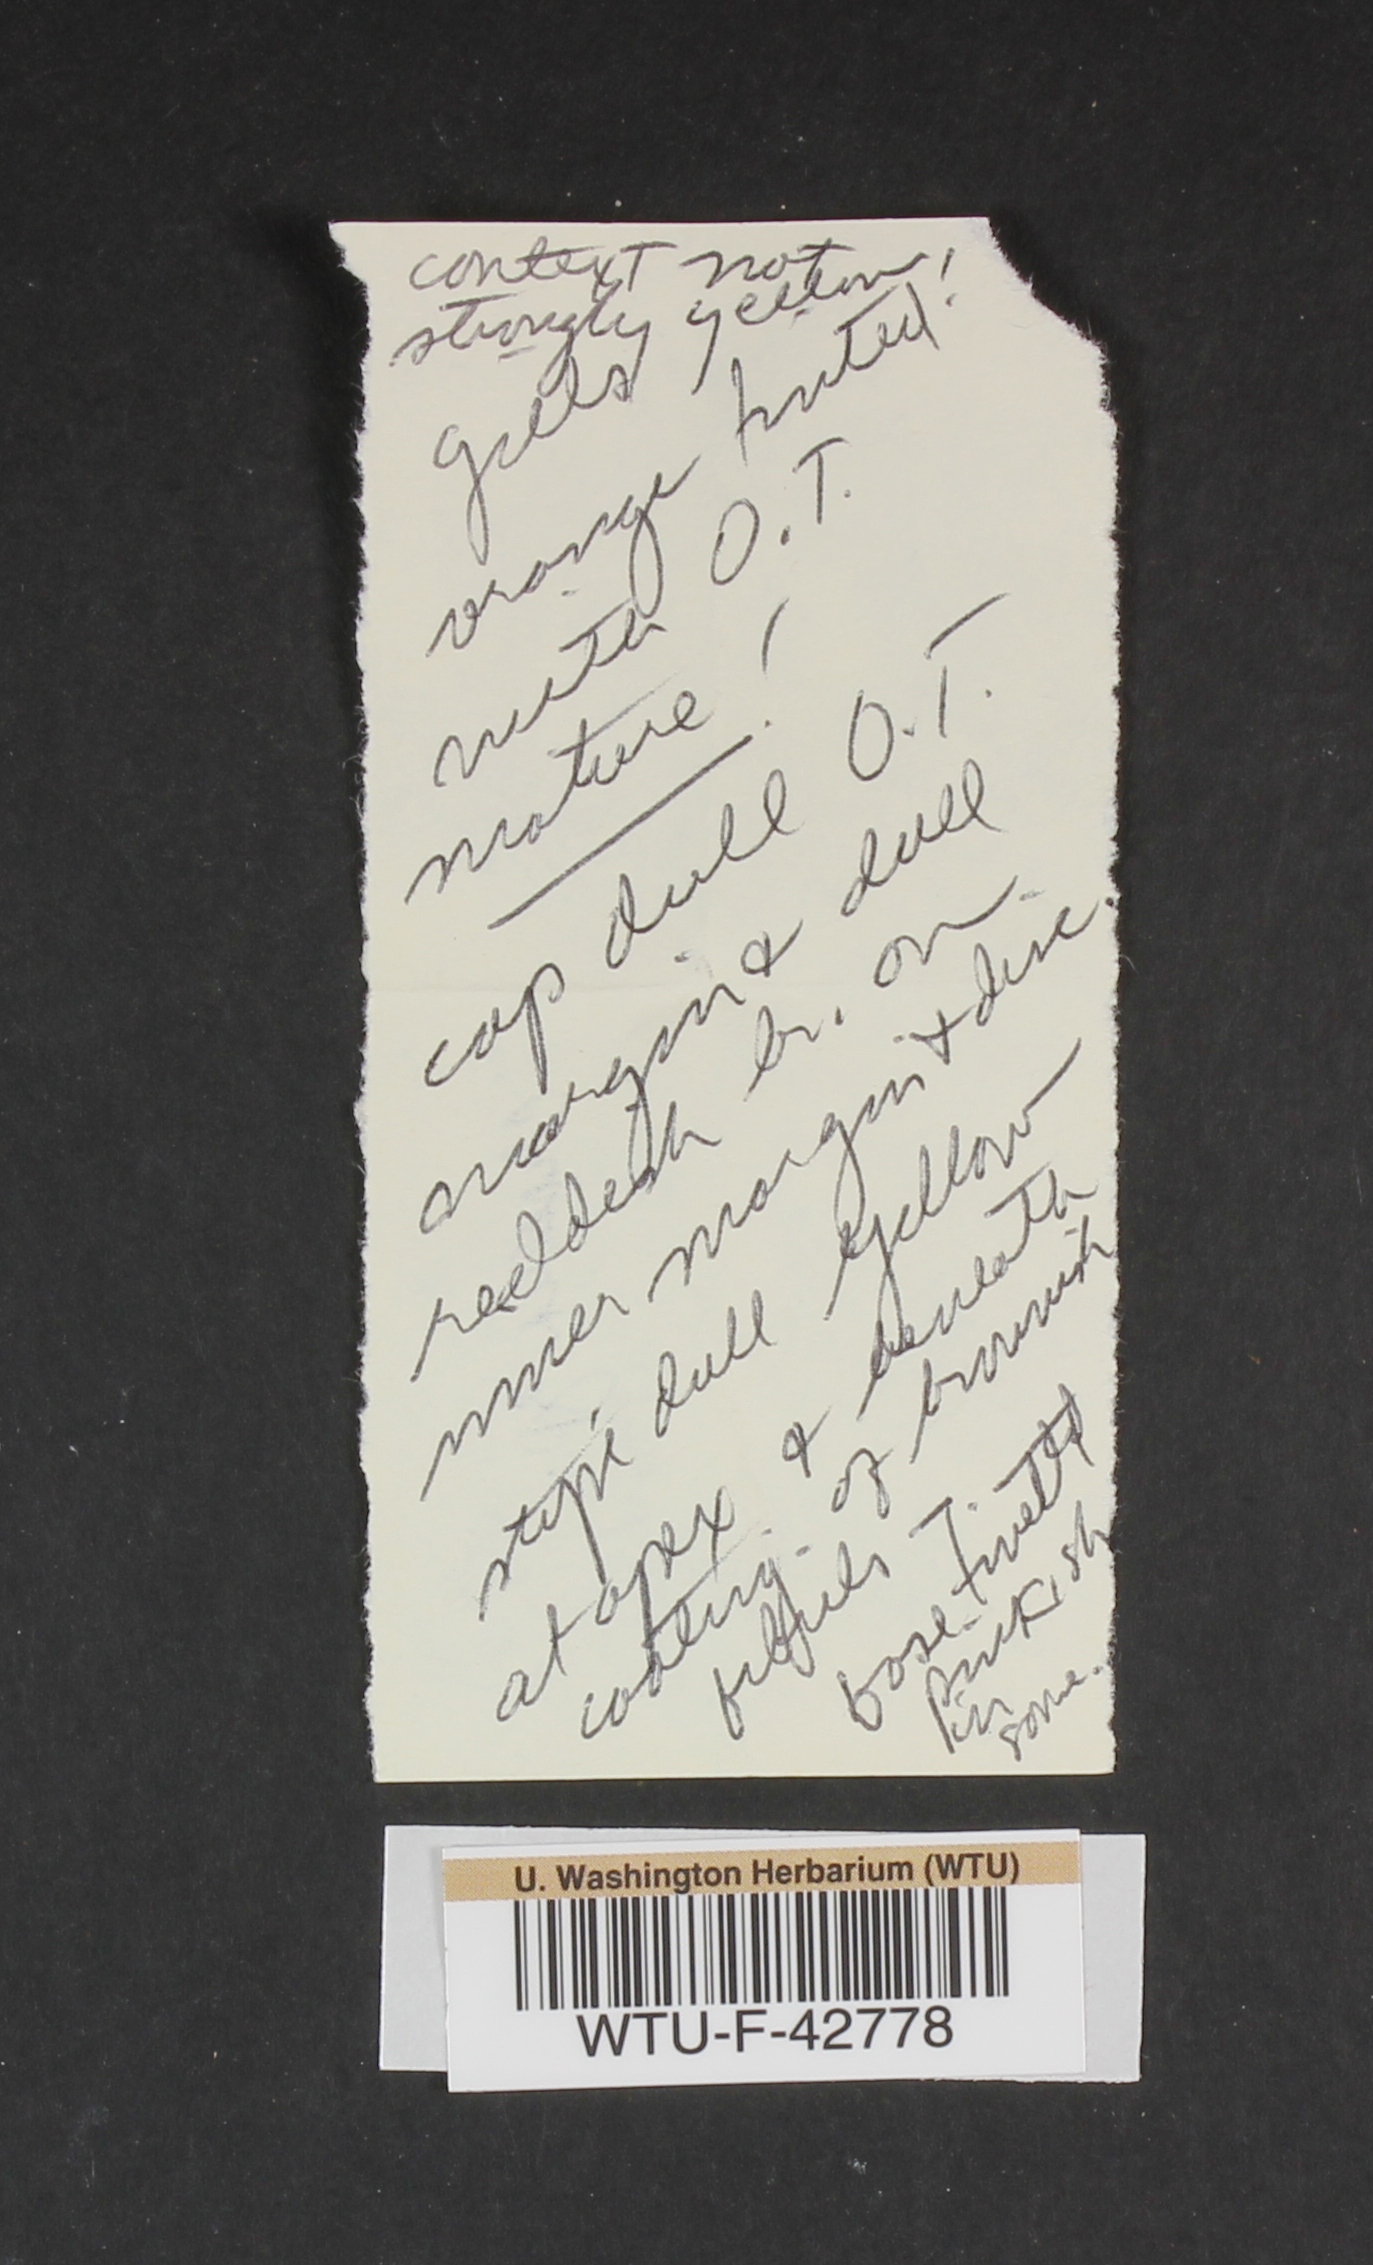 context not
strongly yellow!
gills
orange tinted!
with O.T.
mature!
cap dull O.T.
margin & dull
reddish br. on
inner margin & disc.
stipe dull yellow
at apex & beneath
coating of brownish
fibrils
base tinted
pinkish
in
some.
U. Washington Herbarium (WTU)
WTU-F-42778